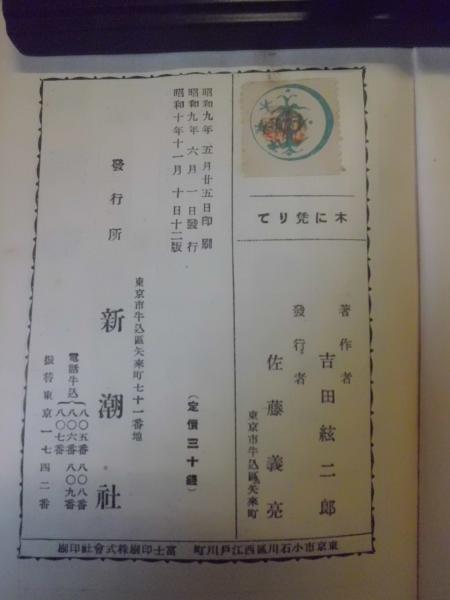 木に凭りて
著作者 吉田絃二郎
發行者 佐藤義亮
東京市牛込區矢來町
(定價三十錢)
昭和九年五月廿五日印刷
昭和九年六月一日發行
昭和十年十一月十日十二版
發行所
東京市牛込區矢來町七十一番地
新潮社
電話牛込
八〇五番 八〇八番
八〇六番 八〇九番
八〇七番
振替東京一七四二番
東京市小石川區西江戸川町 富士印刷株式會社印刷